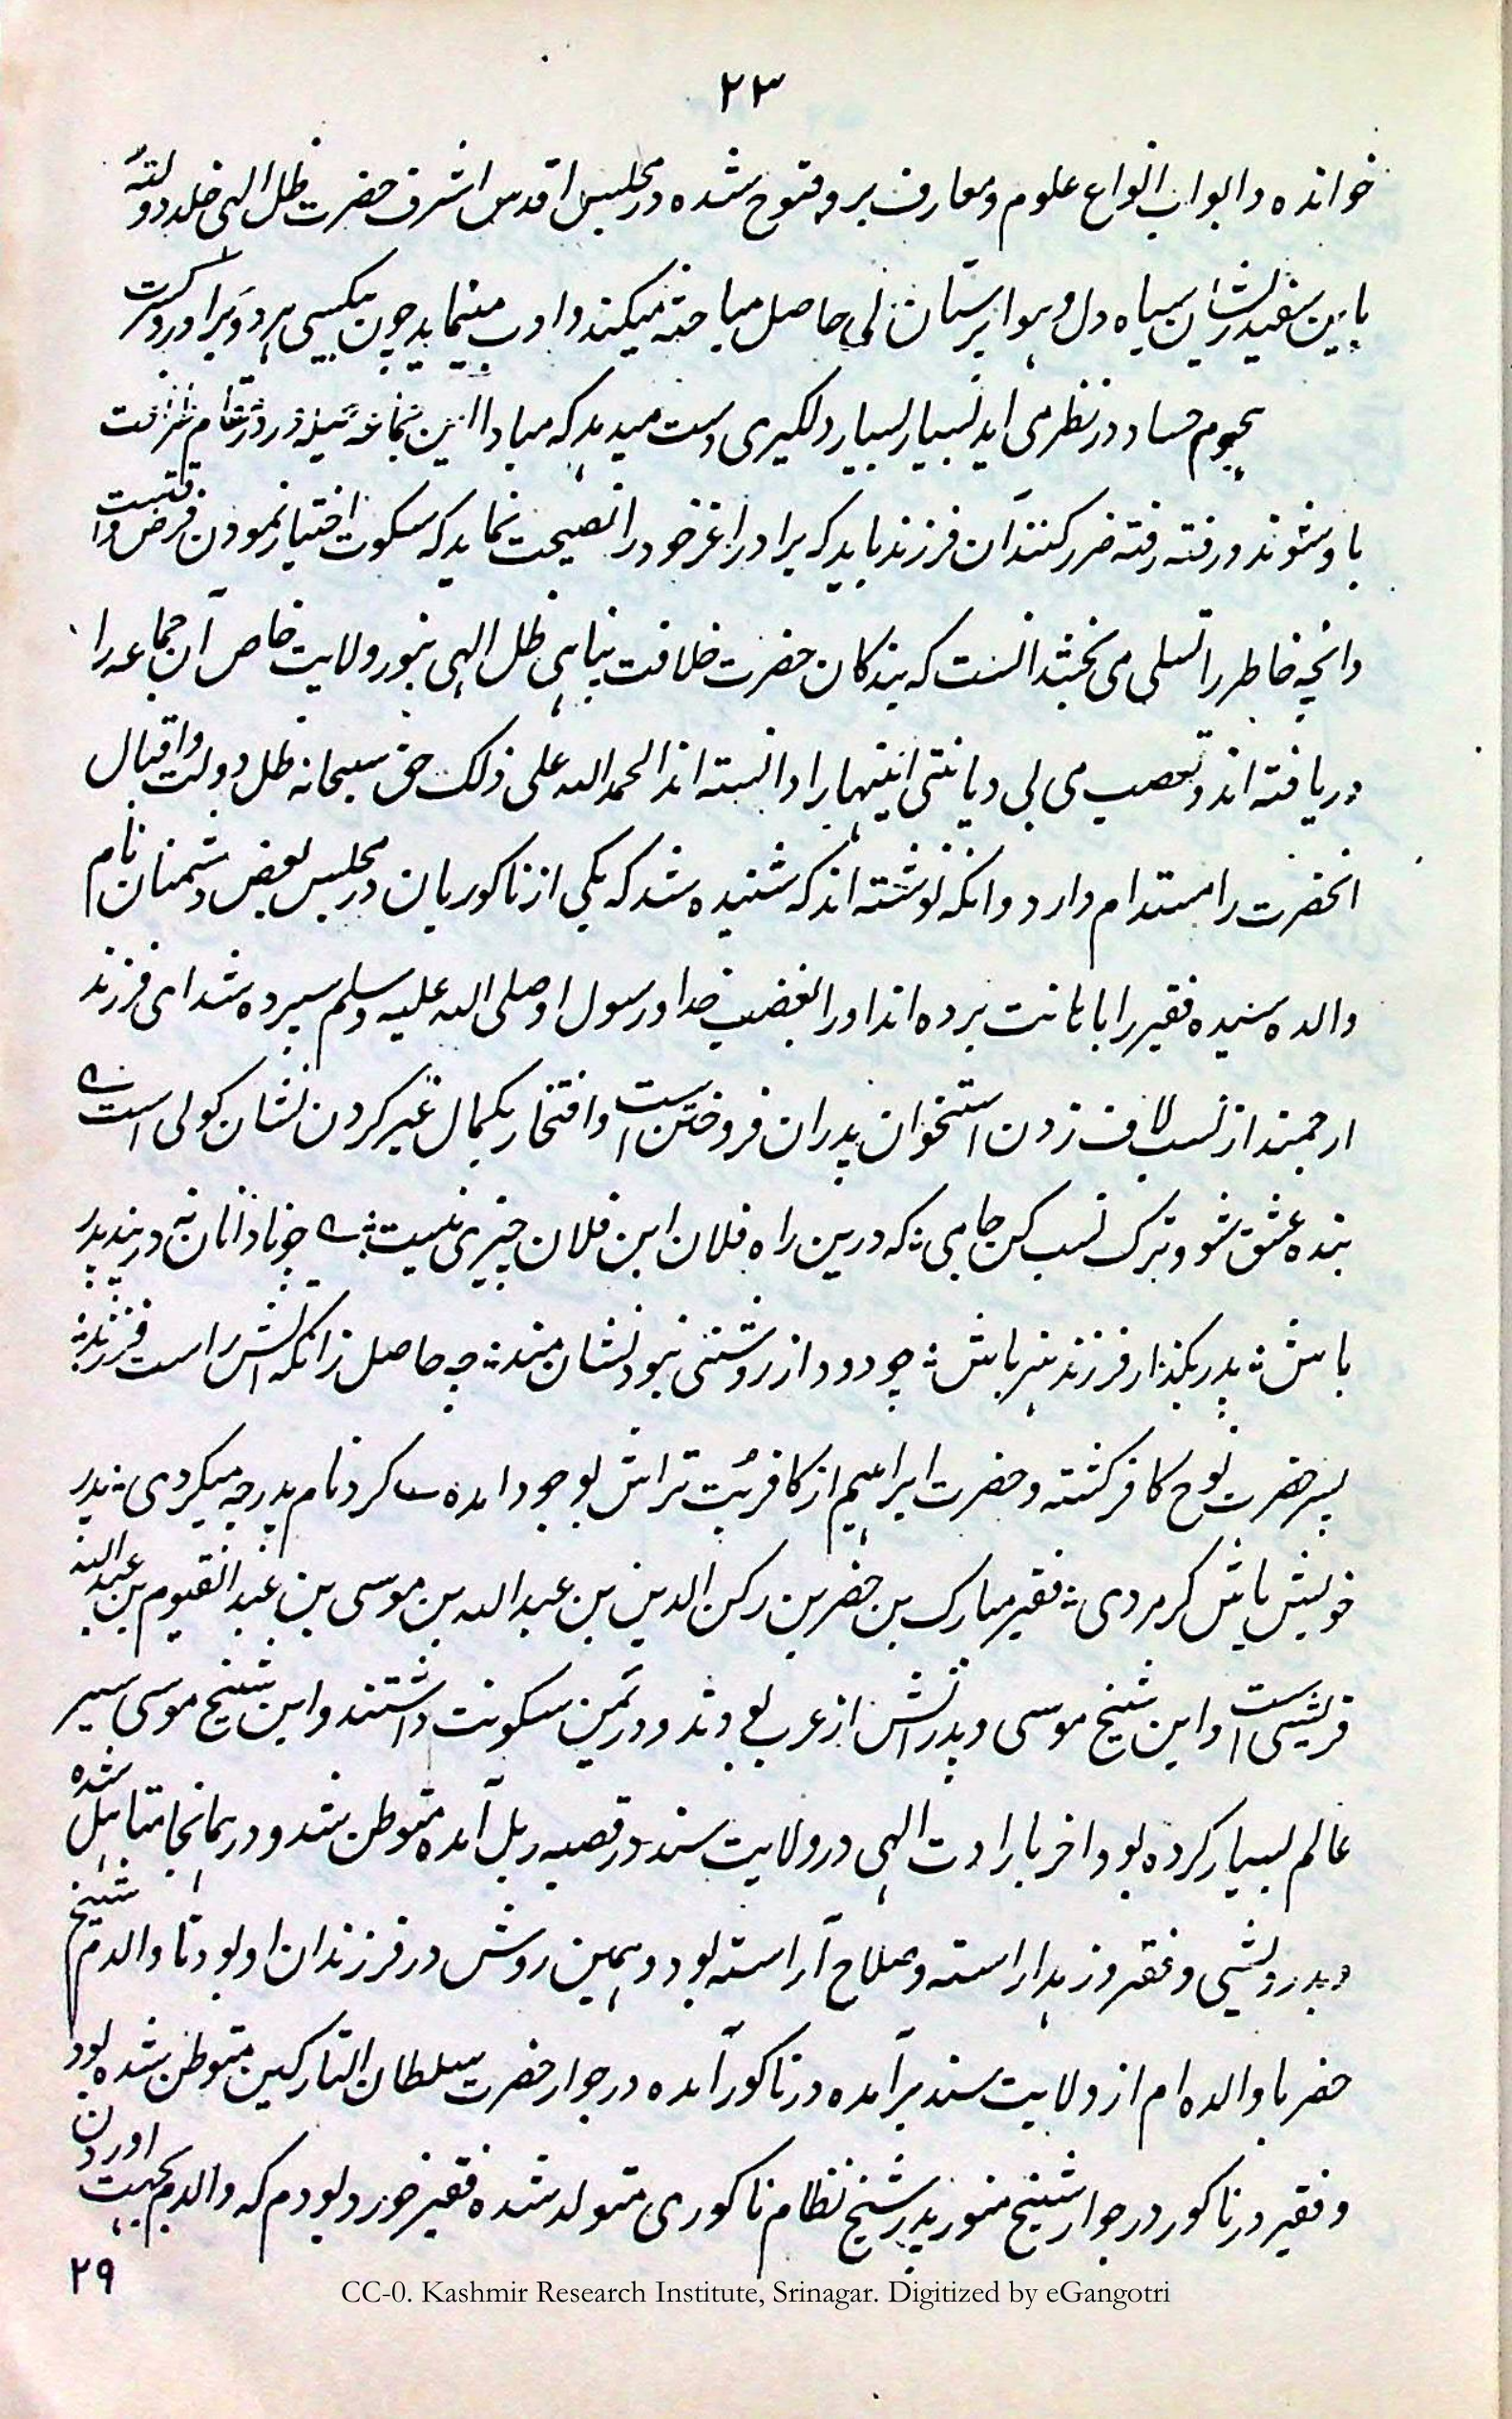 ۲۳
خوانده و ابواب انواع علوم و معارف برو مفتوح شده در مجلس اقدس اشرف حضرت ظل الهی خلد دولته
باین سفید ریشان سیاه دل و هوا پرستان بی حاصل مباحثه میکند و ادب مینماید چون بیکسی هر دو برادر و کثرت
هجوم حساد در نظر می اید بسیار بسیار دلگیری دست میدهد که مبادا این جماعه در مقام
باو شوند و رفته رفته ضرر کنند آن فرزند باید که برادر اغر خود را نصیحت نماید که سکوت اختیار نمودن فرض وقتست
وانچه خاطر را تسلی می بخشد انست که بندگان حضرت خلافت پناهی ظل الهی بنور ولایت خاص آن جماعه را
دریافته اند و تعصب می بی دیانتی اینهارا دانسته اند الحمد الله علی ذلک حق سبحانه ظل دولت و اقبال
انحضرت را مستدام دارد و انکه نوشته اند که شنیده شد که یکی از ناکوریان در مجلس بعض دشمنان نام
والده سنیده فقیر را باهانت برده اند اورا بغضب خدا و رسول او صلی الله علیه وسلم سپرده شد ای فرزند
ارجمند از نسب لاف زدن استخوان پدران فروختن است و افتخار بکمال غیر کردن نشان کولی است
بنده عشق شو و ترک نسب کن جامی؛ که درین راه فلان ابن فلان چیزی نیست؛ چو نادانان نه در بند پدر
باش؛ پدر بگذار فرزند هنر باش؛ چو دود از روشنی نبود نشان مند؛ چه حاصل زانکه آتش راست فرزند؛
پسر حضرت نوح کافر گشته و حضرت ابراهیم از کافر بت تراش بوجود امده کرد نام پدر چه میگردی؛ پدر
خویش باش گر مردی؛ فقیر مبارک بن خضر بن رکن الدین بن عبد الله بن موسی بن عبد القیوم بن عبد الله
قریشی است و این شیخ موسی و پدرانش از عرب بودند و در یمن سکونت داشتند و این شیخ موسی سیر
عالم بسیار کرده بود اخر بارادت الهی در ولایت سند در قصبه ریل آمده متوطن شد و در همانجا متاهل شده
و بدرویشی و فقر و زهد اراسته و صلاح آراسته بود و همین روش در فرزندان او بود تا والدم شیخ
خضر با والده ام از ولایت سند برآمده در ناکور آمده در جوار حضرت سلطان التارکین متوطن شده بود
و فقیر در ناکور در جوار شیخ پدر شیخ نظام ناکوری متولد شده فقیر خورد بودم که والدم بجهت اوردن
۲۹
CC-0. Kashmir Research Institute, Srinagar. Digitized by eGangotri